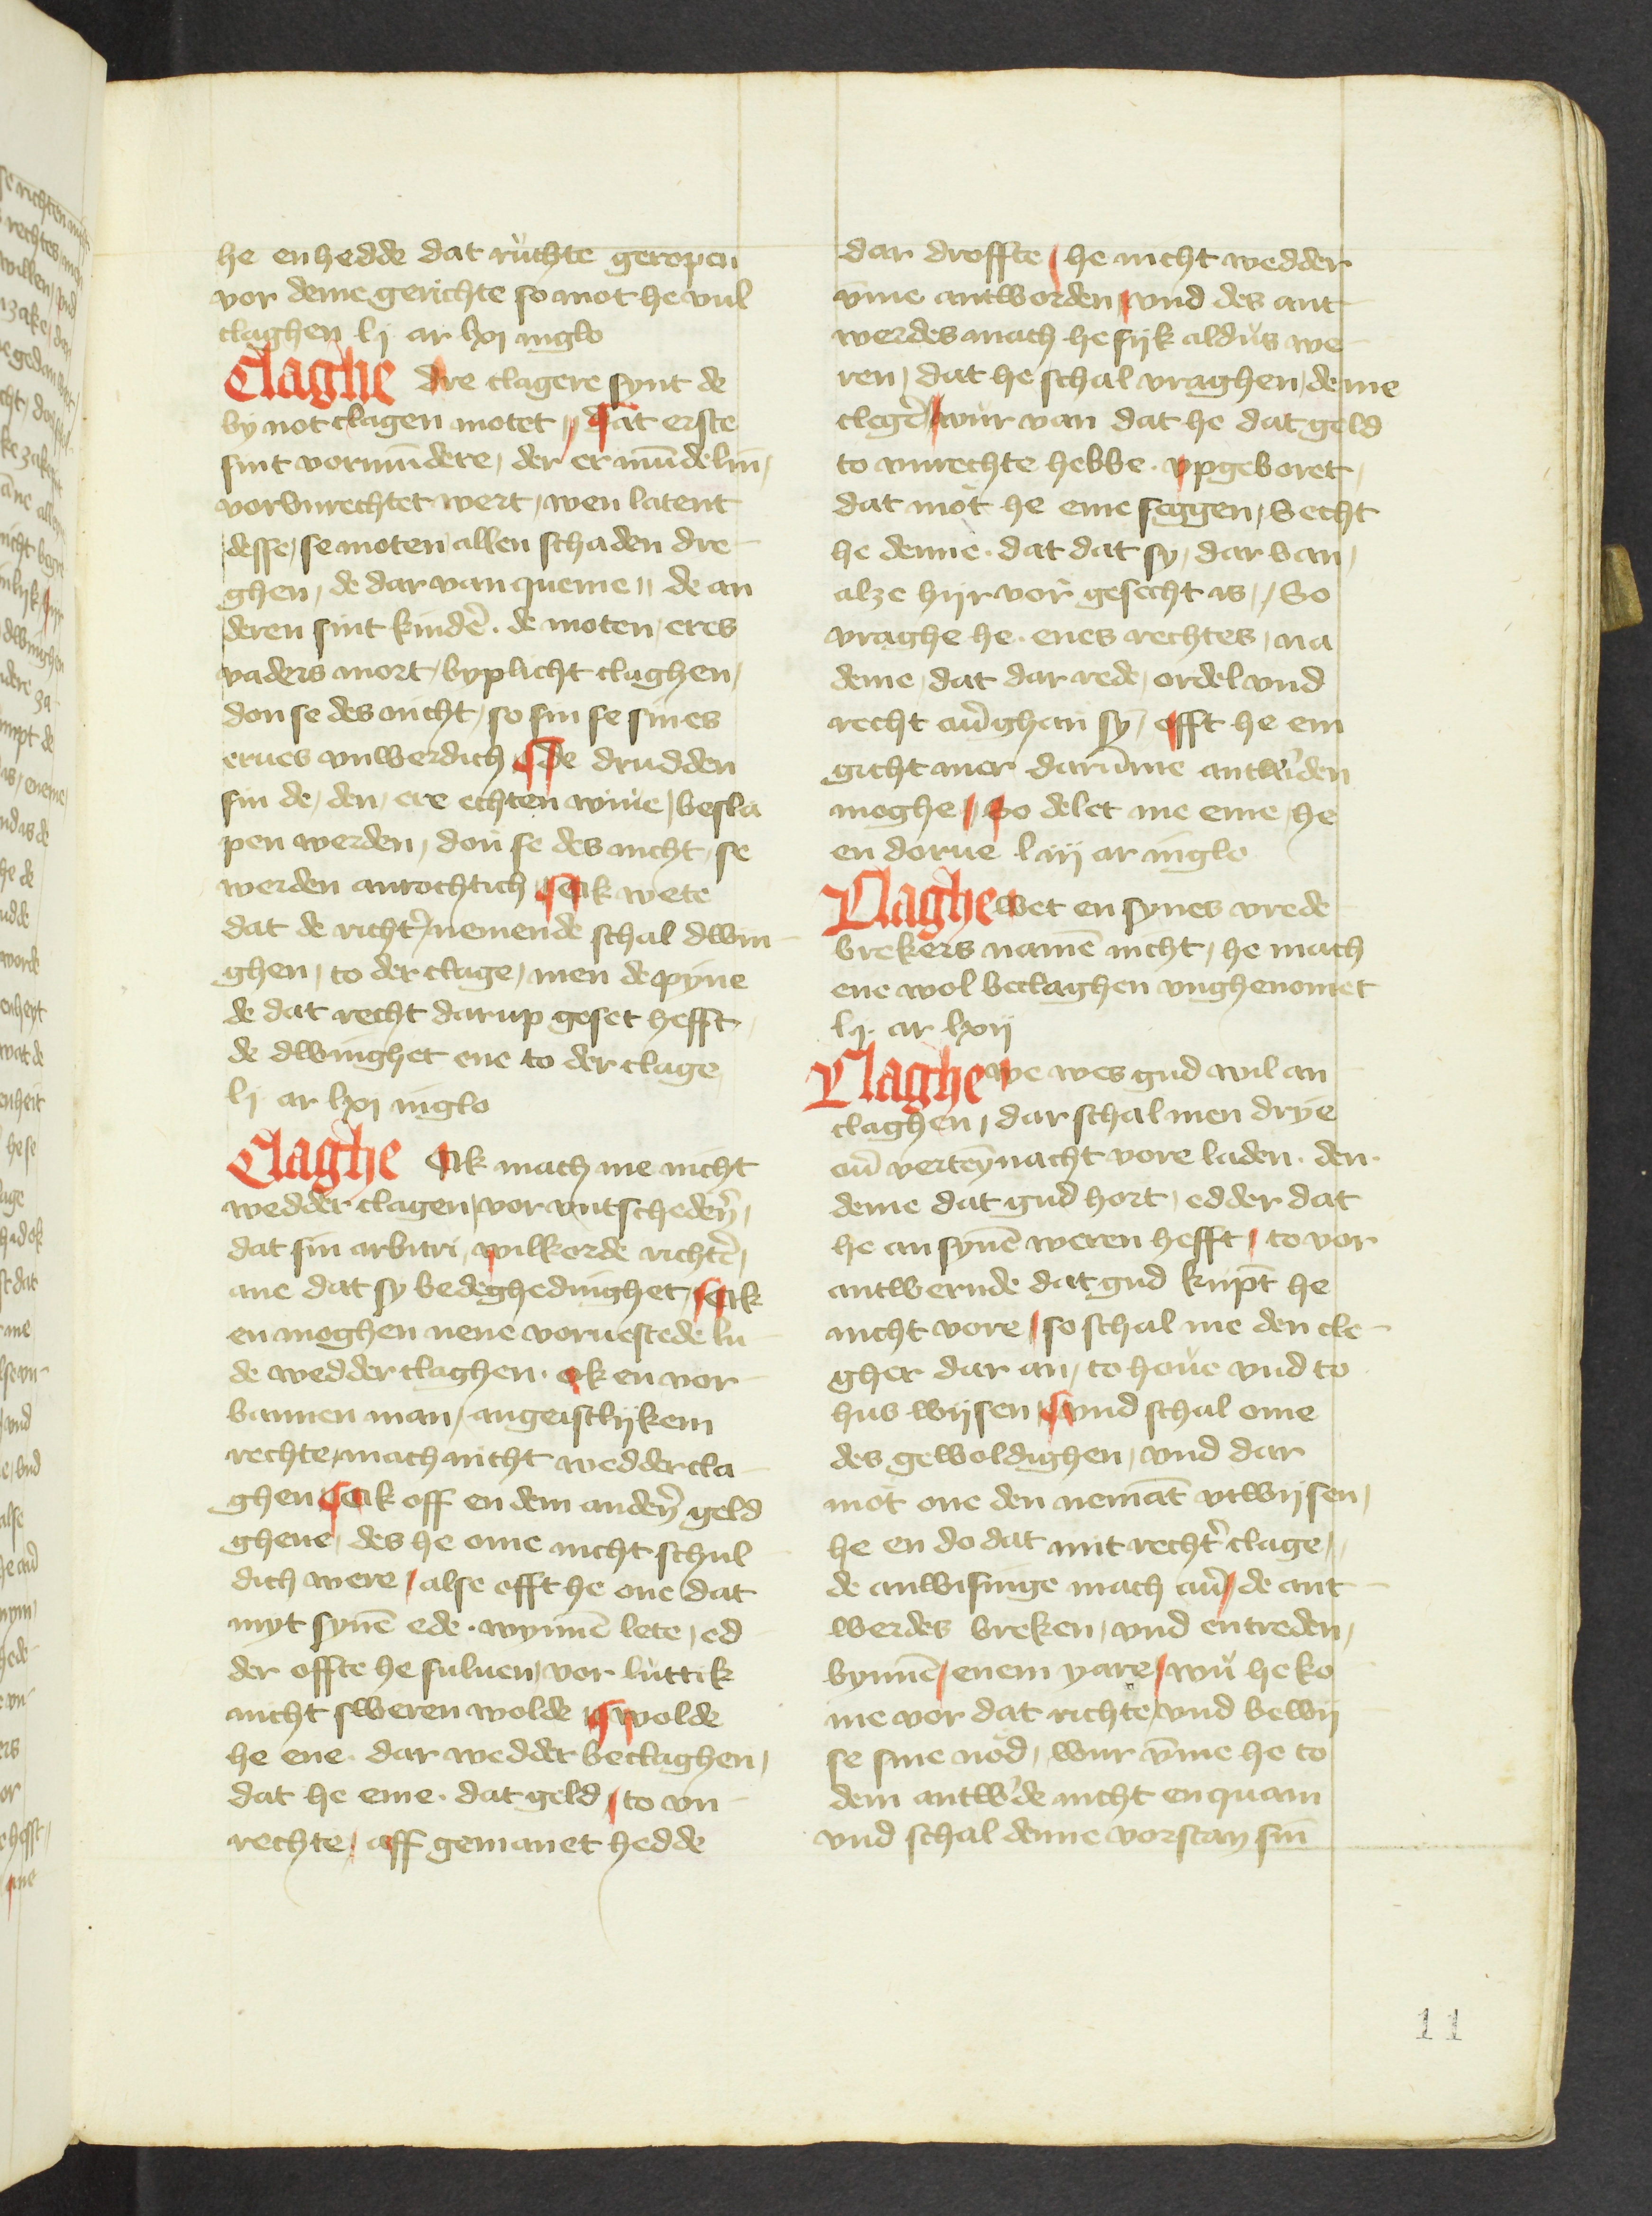 he en hedde dat ruchte geropen
vor deme gerichte so mot he vul
claghen lj ar lxj in glo
Claghe dre clagere synt de
by not clagen motet // dat erste
sint vormundere, der er mundelin,
vorvnrechtet wert, wen latent
desse, se moten allen schaden dre
ghen, de dar van queme // de an
deren sint kindẽ. de moten, eres
vaders mort, by plicht claghen,
don se des nicht, so sin se sines
erues vnwerdich ¶ de drudden
sin de, den, ere echten wiue, besla
pen werden, don se des nicht, se
werden anrochtich ¶ Ok wete
dat de richtẽ nemende schal dwin
ghen, to der clage, men de pyne
de dat recht dar up geset hefft,
de dwinghet ene to der clage
lj ar lxj in glo
Claghe Ok mach me nicht
wedder clagen, vor vntschedẽ,
dat sin arbitri, wilkorde richtẽ,
ane dat sy bedeghedinghet, ¶ Ok
en moghen nene voruestede lu
de wedder claghen. ok en vor
bannen man, an geistlykem
rechte, mach nicht wedder cla
ghen ¶ Ok off en dem andeñ geld
gheue, des he ome nicht schul
dich were, alse efft he one dat
myt synẽ ede. wynnẽ lete, ed
der offte he suluen, vor luttik
nicht sweren wolde ¶ wolde
he ene. dar wedder beclaghen,
dat he eme. dat geld, to vn
rechte, aff gemanet hedde
dar droffte, he nicht wedder
vm̄e antworden, vnd des ant
werdes mach he sijk aldus we
ren, dat he schal vraghen, deme
clegẽ, wur van dat he dat geld
to vnrechte hebbe. vpgeboret,
dat mot he eme seggen, Secht
he denne. dat dat sy, dar van,
alze hijr vor gesecht is, / So
vraghe he. enes rechtes, na
deme, dat dar rede, ordel vnd
recht oũ ghan sy, efft he em
gicht mer darum̄e antwͬden
moghe, / So delet me eme, he
en dorue l iij ar in glo
Claghe wet en synes vrede
brekers namẽ nicht, he mach
ene wol beclaghen vnghenomet
lj. ar lxij
Claghe we wes gud wil an
claghen, dar schal men drye
oũ verteynacht vore laden. den.
deme dat gud hort, edder dat
he an synẽ weren hefft, to vor
antwernde dat gud kupt he
nicht vore, so schal me den cle
gher dar an, to houe vnd to
hus wijsen, ¶ vnd schal ome
des geweldighen, vnd dar
mot one den nemāt vtwijsen,
he en do dat mit rechtͬ clage,
de anwisinge mach oũ, de ant
werdes breken, vnd entreden,
bynnẽ, enem yare, wu he ko
me vor dat richte, vnd bewij
se sine nod, wur vm̄e he to
dem antwͬde nicht en quam
vnd schal denne vorstan sin
11